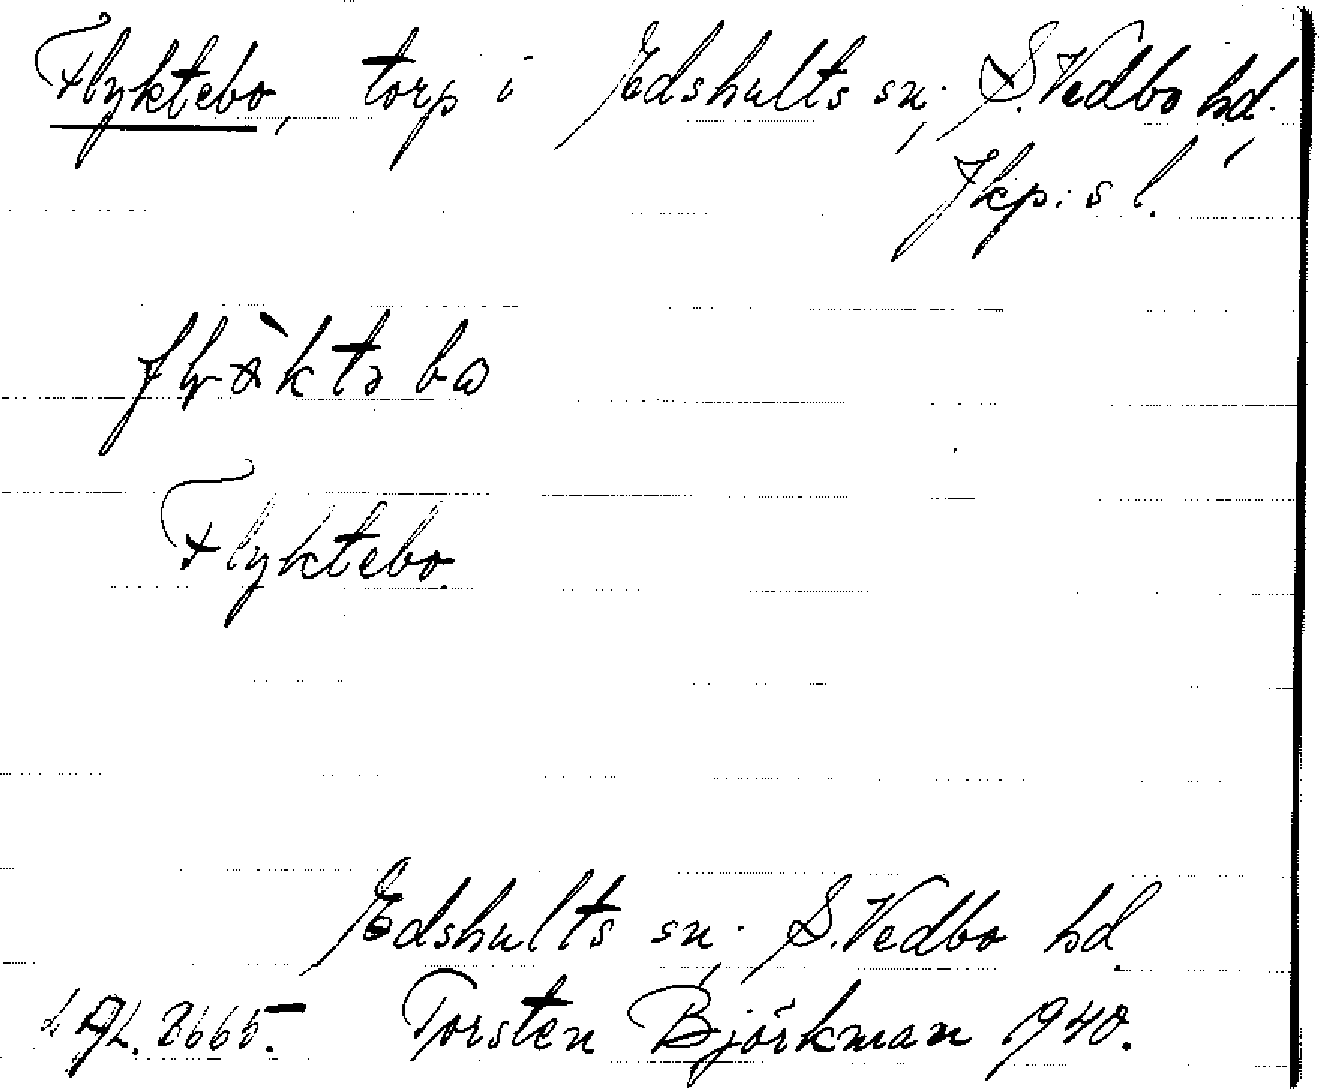 Flyktebo, torp i Edshults sn, S. Vedbo hd,
Jkp:s l.
Flyktebo
Edshults sn, S. Vedbo hd.
2665. Torsten Björkman 1940.